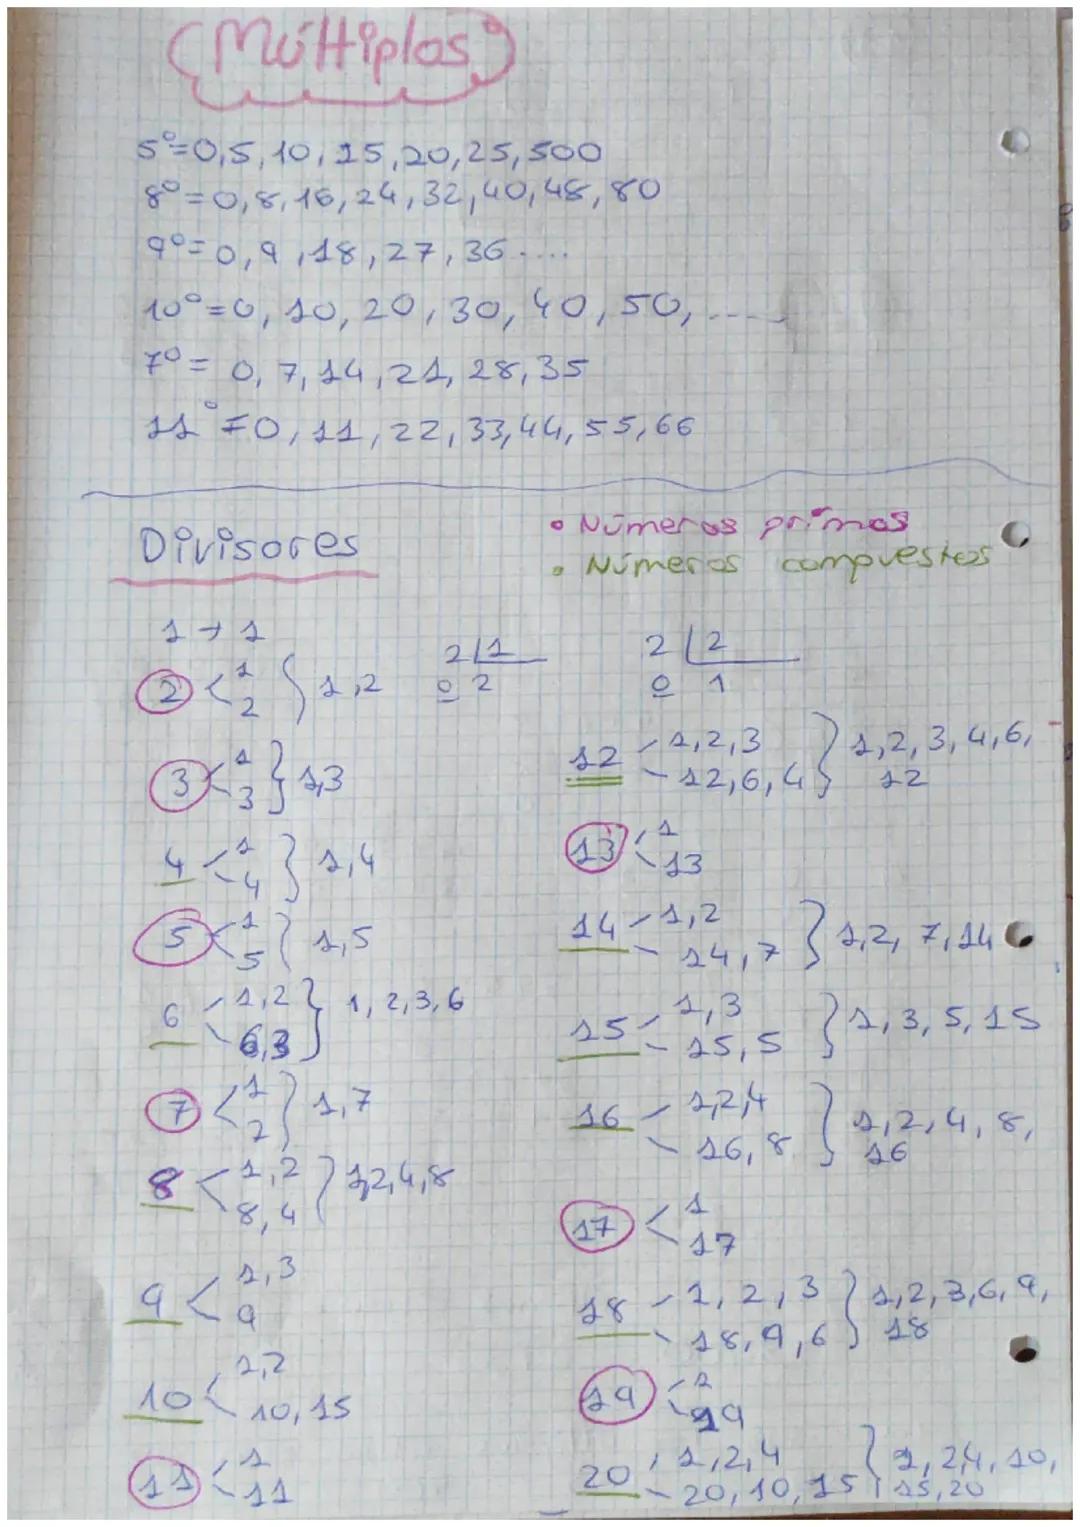 Múltiplos
5º=0,5,10,15,20,25,500
8º=0,8,16,24,32,40,48,80
9º=0,9,18,27,36....
10º=0,10,20,30,40,50,.....
7º= 0,7,14,21,28,35
11º=0,11,22,33,44,55,66
Divisores
• Números primos
• Números compuestos
1→1
2 < 1
2 } 1,2
2 | 1
0 2
2 | 2
0 1
3 < 1
3 } 1,3
4 < 1
4 } 1,4
5 < 1
5 } 1,5
6 < 1,2
6,3 } 1,2,3,6
7 < 1
7 } 1,7
8 < 1,2
8,4 } 1,2,4,8
9 < 1,3
9
10 < 1,2
10,15
11 < 1
11
12 < 1,2,3
12,6,4 } 1,2,3,4,6,
12
13 < 1
13
14 < 1,2
14,7 } 1,2,7,14
15 < 1,3
15,5 } 1,3,5,15
16 < 1,2,4
16,8 } 1,2,4,8,
16
17 < 1
17
18 < 1,2,3
18,9,6 } 1,2,3,6,9,
18
19 < 1
19
20 < 1,2,4
20,10,15 } 1,2,4,10,
15,20